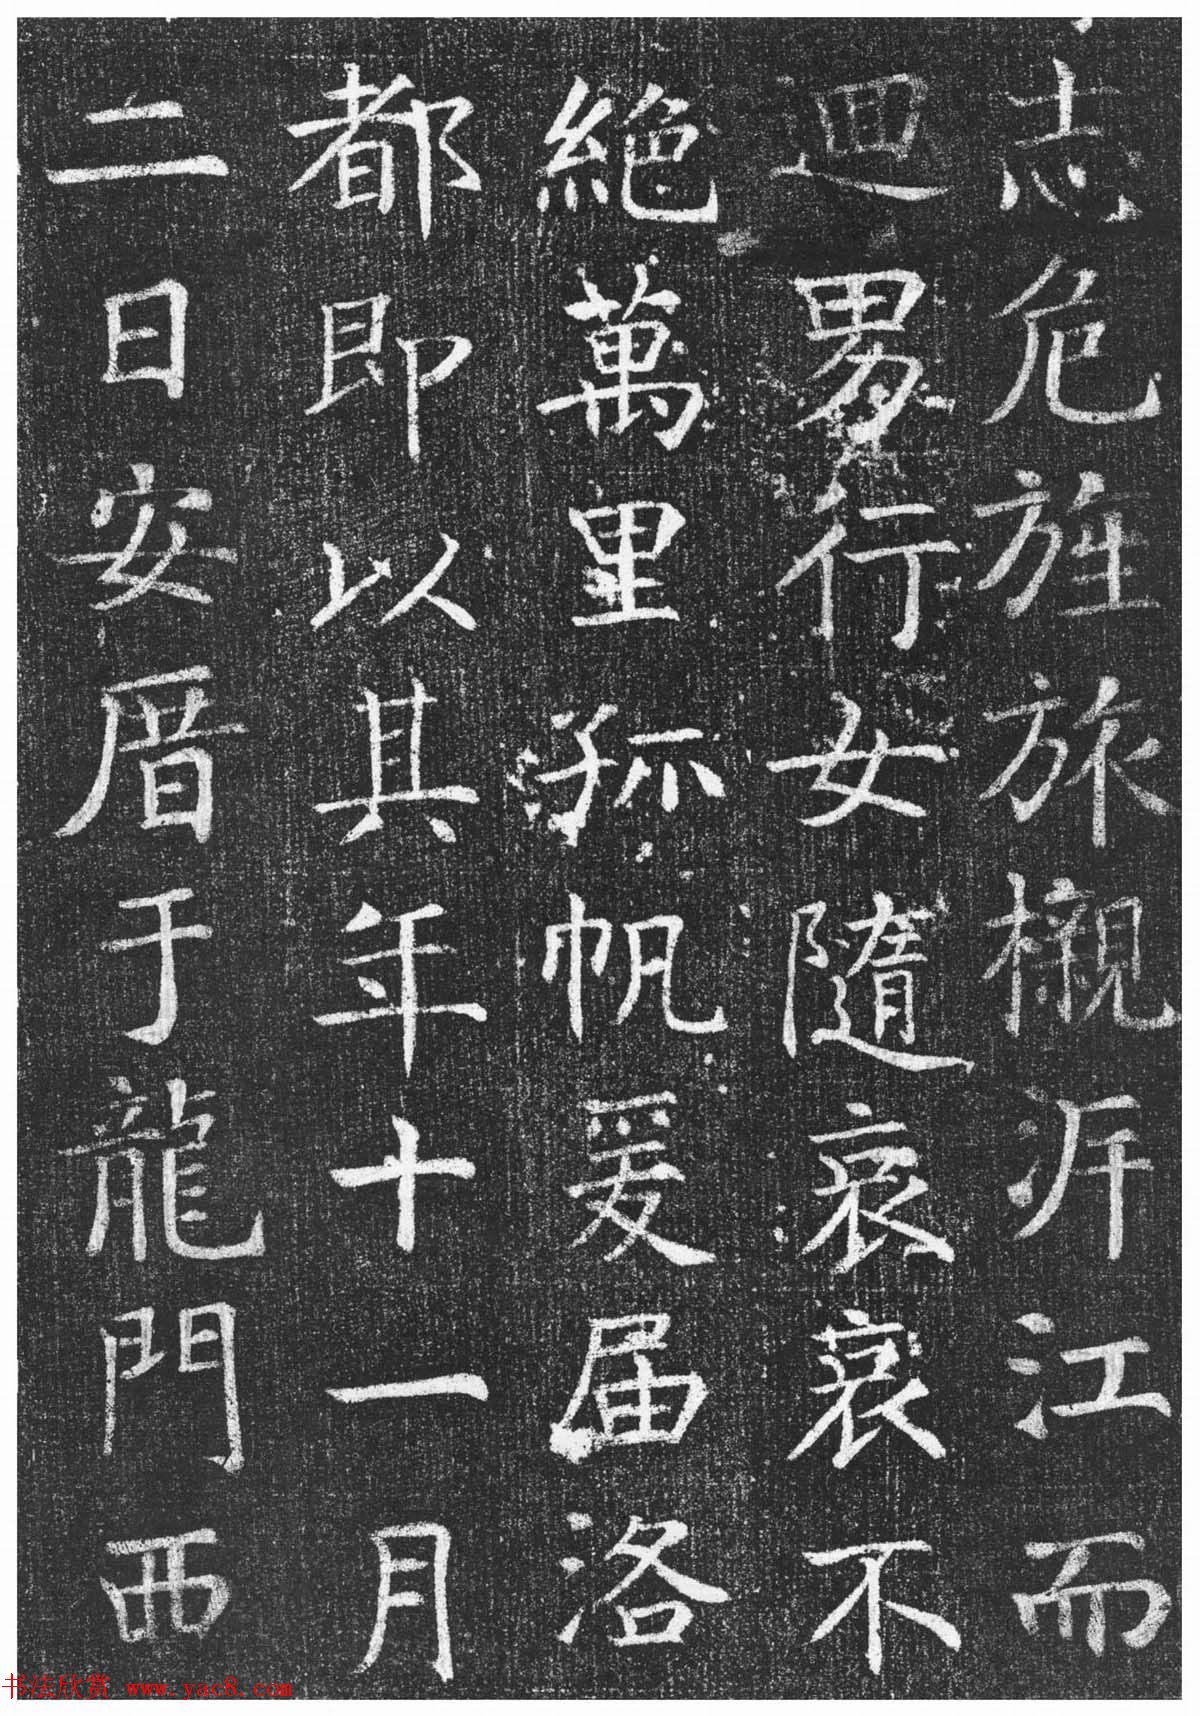 志危旌旅櫬泝江而
迴男行女隨哀哀不
絕萬里孤帆爰届洛
都即以其年十一月
二日安厝于龍門西
书法欣赏 www.yac8.com